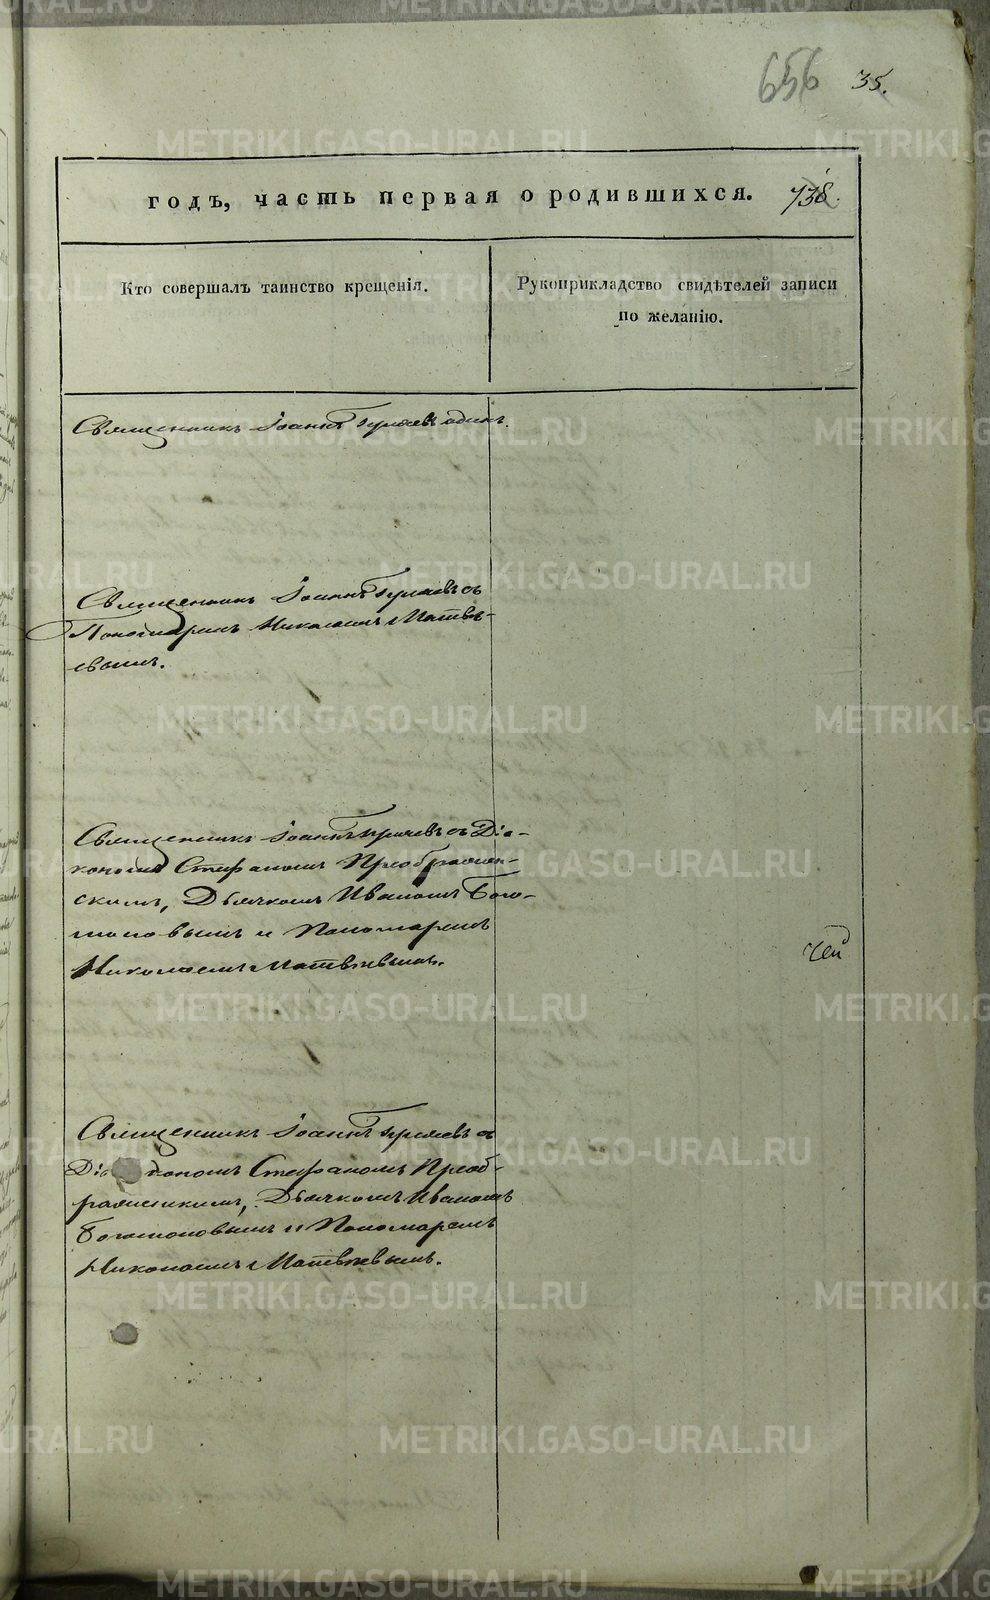 656 35.
годъ, часть первая о родившихся. 738.
Кто совершалъ таинство крещенія.
Рукоприкладство свидѣтелей записи
по желанію.
Священникъ Іоаннъ Гуляевъ одинъ.
Священникъ Іоаннъ Гуляевъ съ
Пономаремъ Николаемъ Матвѣ-
евымъ.
Священникъ Іоаннъ Гуляевъ съ Діа-
кономъ Стефаномъ Преображен-
скимъ, Дьячкомъ Иваномъ Бого-
моловымъ и Пономаремъ
Николаемъ Матвѣевымъ.
чей
Священникъ Іоаннъ Гуляевъ съ
Діакономъ Стефаномъ Преоб-
раженскимъ, Дьячкомъ Иваномъ
Богомоловымъ и Пономаремъ
Николаемъ Матвѣевымъ.
METRIKI.GASO-URAL.RU